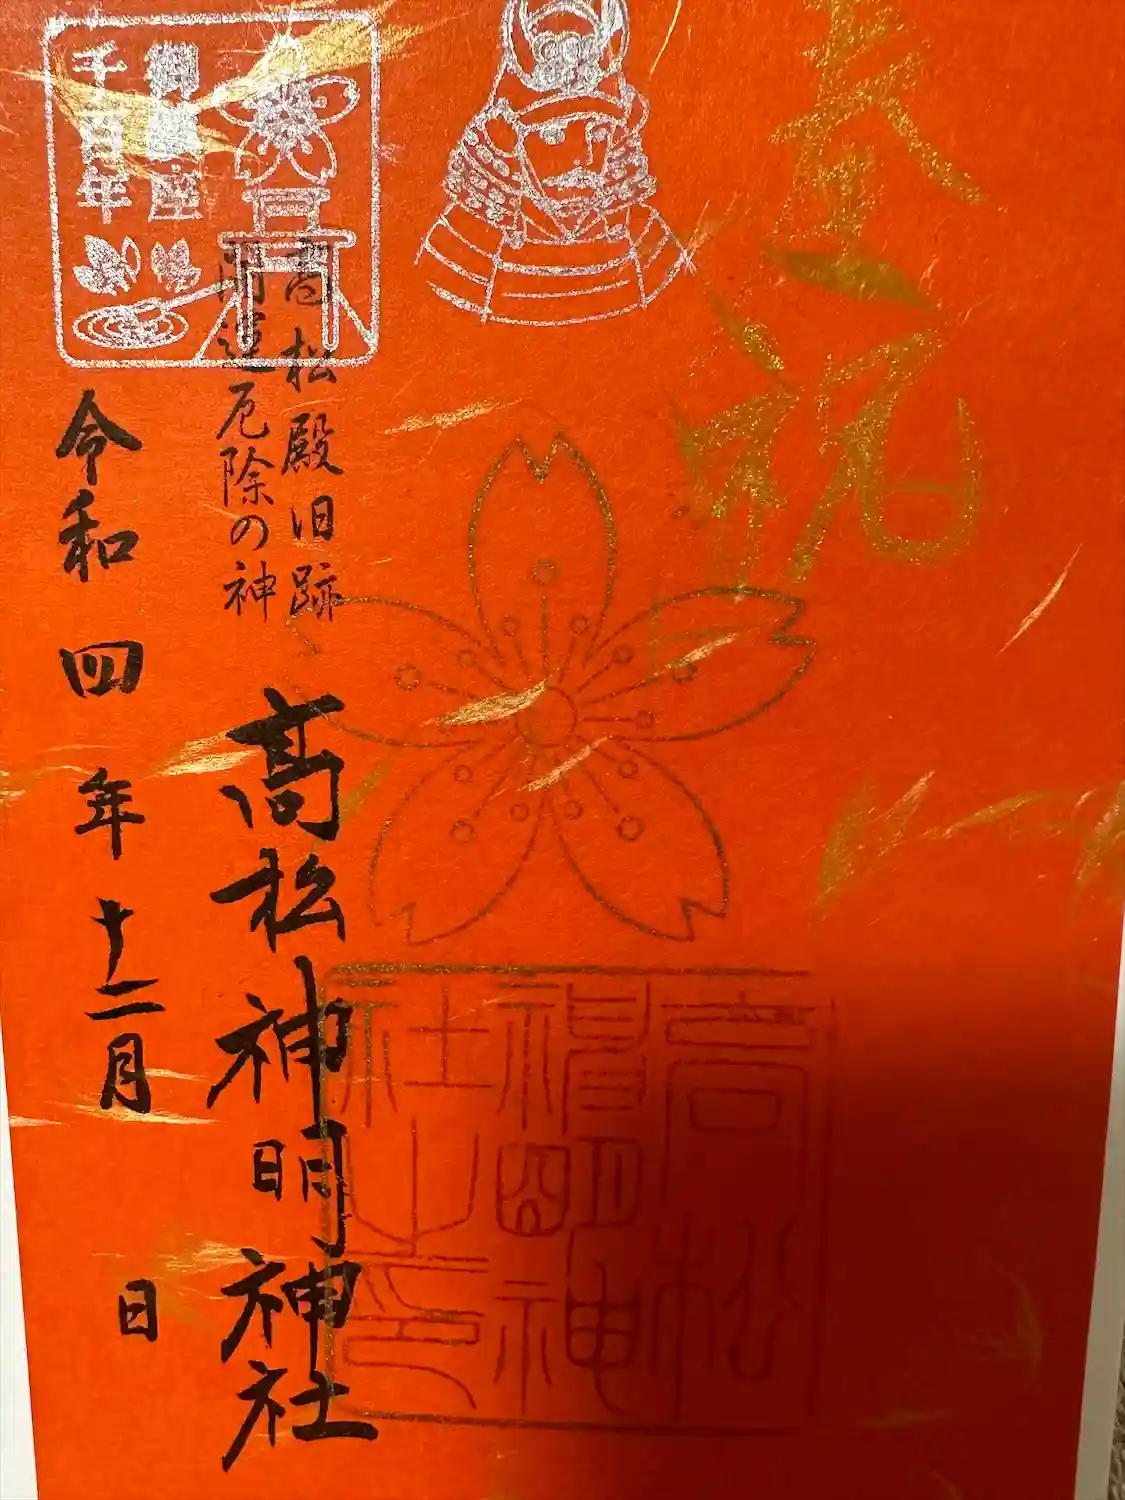 奉祝
高松神明神社之印
高松殿旧跡
開運厄除の神
高松神明神社
御鎮座
千百年
令和四年十二月 日